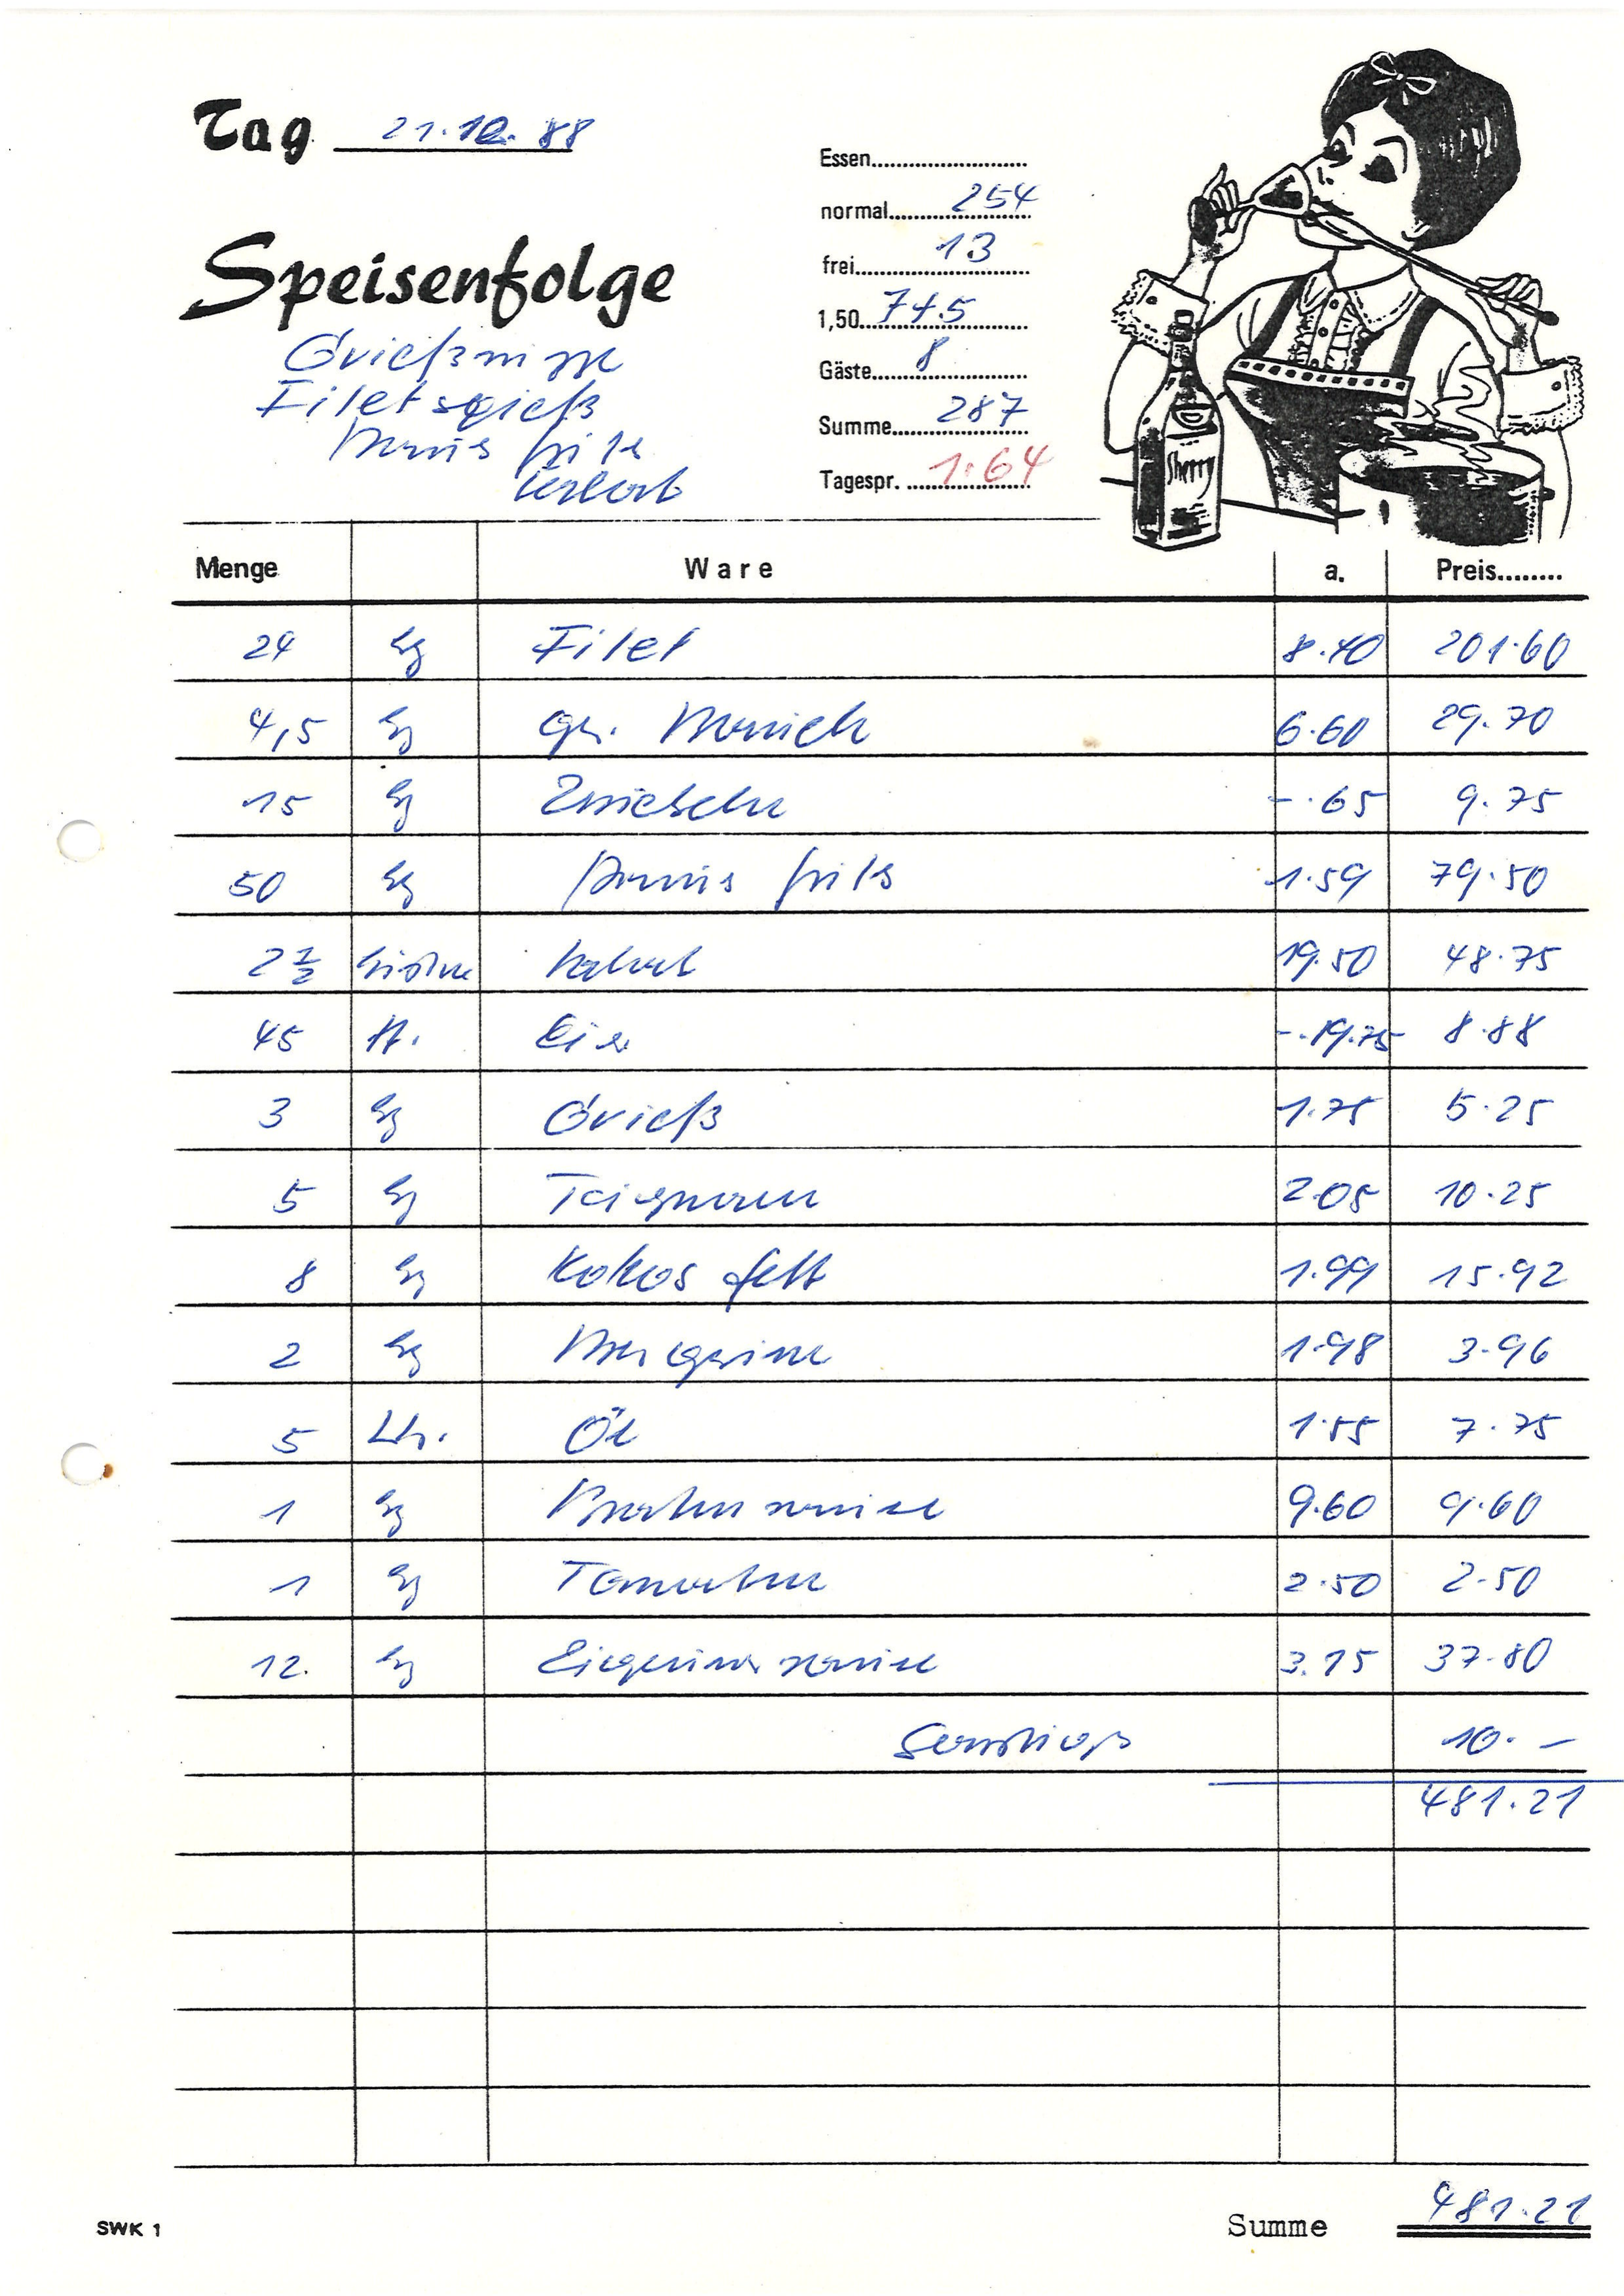 Tag 21.10.88
Essen
normal 254
frei 13
1,50 7+5
Gäste 8
Summe 287
Tagespr. 1.64
Speisenfolge
Grießsuppe
Filetspieß
Pommes frites
Sherry
Menge Ware a. Preis
24 kg Filet 8.40 201.60
4,5 kg ger. Bauch 6.60 29.70
15 kg Zwiebeln -.65 9.75
50 kg Pommes frites 1.59 79.50
2 1/2 Kisten Salat 19.50 48.75
45 St. Eier -.19.75 8.88
3 kg Grieß 1.75 5.25
5 kg Teigwaren 2.05 10.25
8 kg Kokosfett 1.99 15.92
2 kg Margarine 1.98 3.96
5 Ltr. Öl 1.55 7.75
1 kg Bratensauce 9.60 9.60
1 kg Tomaten 2.50 2.50
12. kg 3.15 37.80
Sonstiges 10.-
481.21
SWK 1
Summe 481.21